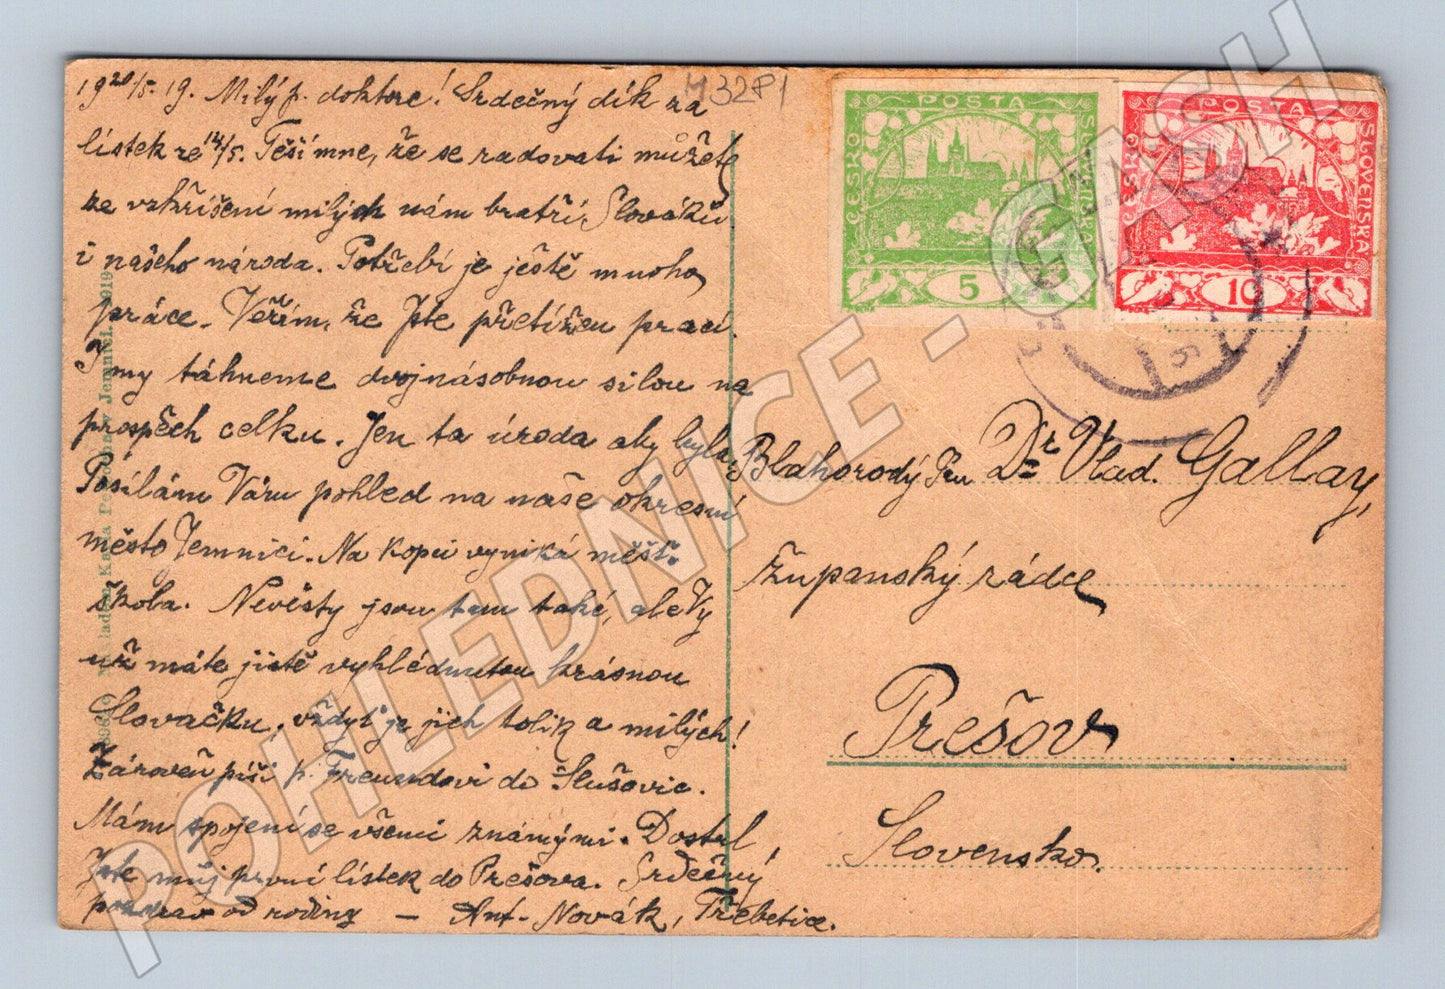 19 20/5. 19. Milý p. doktore! Srdečný dík za
lístek ze 14/5. Těší mne, že se radovati můžete
ze vzkříšení milých nám bratří, Slováků
i našeho národa. Potřebí je ještě mnoho
práce. Věřím, že Jste přetížen prací.
I my táhneme dvojnásobnou silou na
prospěch celku. Jen ta úroda aby byla.
Posílám Vám pohled na naše okresní
město Jemnici. Na kopci vyniká měšť.
škola. Nevěsty jsou tam také, ale Vy
už máte jistě vyhlédnutou krásnou
Slovačku, vždyť je jich tolik a milých!
Zároveň píši p. Freundovi do Slušovic.
Mám spojení se všemi známými. Dostal
Jste můj první lístek do Prešova. Srdečný
pozdrav od rodiny — Ant. Novák, Třebetice.
H32P1
POSTA
ČESKO
SLOVENSKA
5
POSTA
ČESKO
SLOVENSKA
10
Blahorodý Pan Dr. Vlad. Gallay,
župánský rádce
Prešov
Slovensko.
1919
POHLEDNICE - GASH